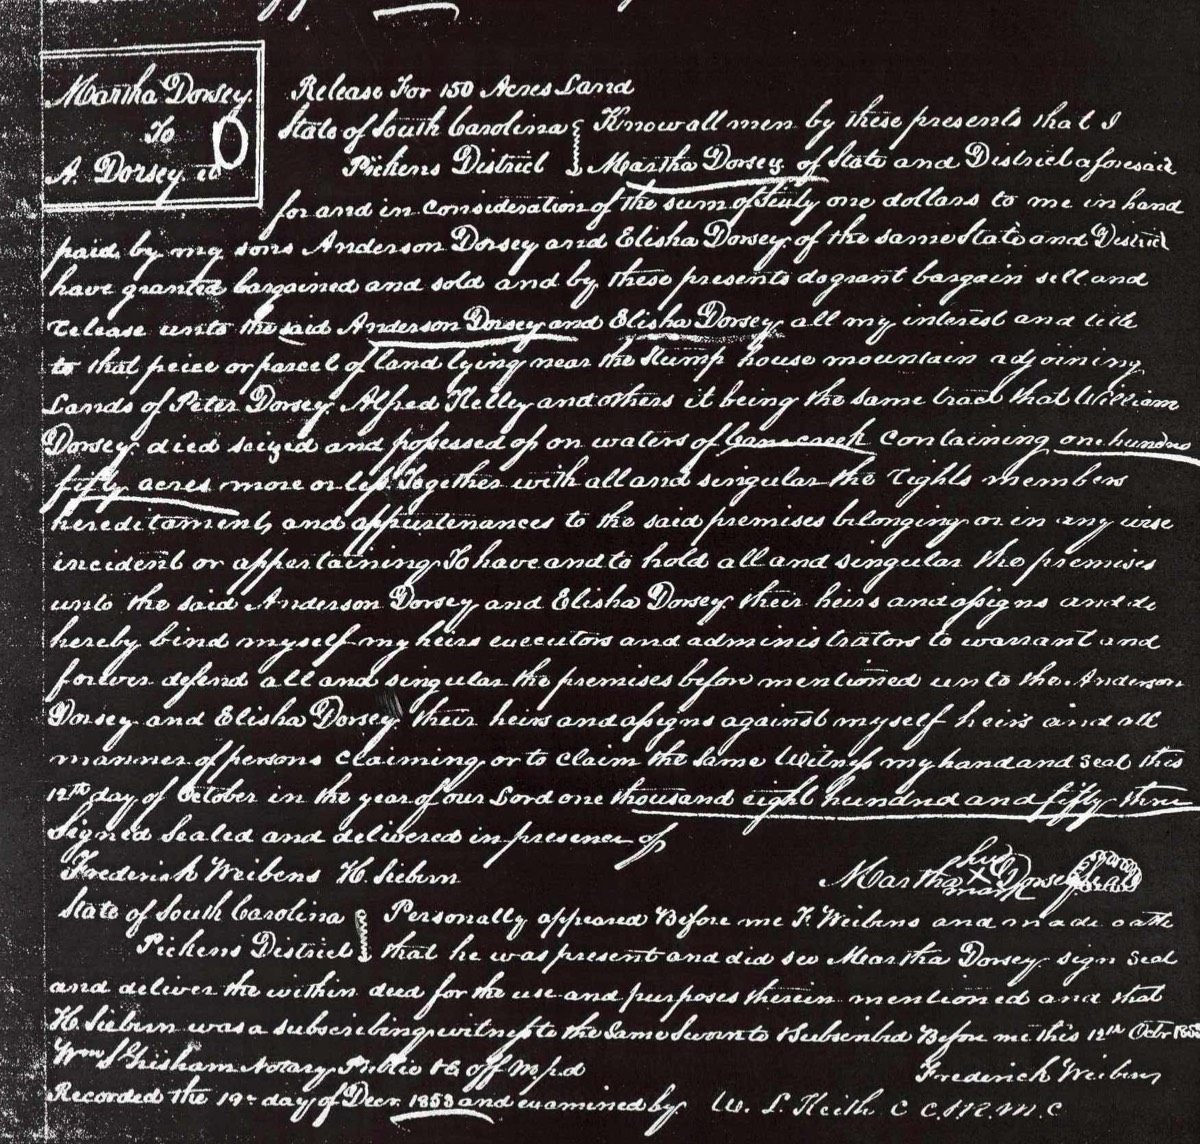 Martha Dorsey
To
A. Dorsey et
Release For 150 Acres Land
State of South Carolina
Pickens District
Know all men by these presents that I
Martha Dorsey of State and District aforesaid
for and in consideration of the sum of one dollars to me in hand
paid by my sons Anderson Dorsey and Elisha Dorsey of the same State and District
have granted bargained and sold and by these presents do grant bargain sell and
release unto the said Anderson Dorsey and Elisha Dorsey all my interest and title
to that peice or parcel of land lying near the Stump house mountain adjoining
Lands of Peter Dorsey Alfred Kelley and others it being the same tract that William
Dorsey died seized and possessed of on waters of Cane creek containing one hundred
fifty acres more or less. Together with all and singular the rights members
hereditaments and appurtenances to the said premises belonging or in any wise
incident or appertaining To have and to hold all and singular the premises
unto the said Anderson Dorsey and Elisha Dorsey their heirs and assigns and do
hereby bind myself my heirs executors and administrators to warrant and
forever defend all and singular the premises before mentioned unto the Anderson
Dorsey and Elisha Dorsey their heirs and assigns against myself heirs and all
manner of persons claiming or to claim the same Witness my hand and seal this
12th day of October in the year of our Lord one thousand eight hundred and fifty three
Signed Sealed and delivered in presence of
Frederick Weibens H. Siebern
Martha her x mark Dorsey Seal
State of South Carolina
Pickens District
Personally appeared Before me F. Weibens and made oath
that he was present and did see Martha Dorsey sign seal
and deliver the within deed for the use and purposes therein mentioned and that
H. Siebern was a subscribing witness to the same Sworn to & Subscribd Before me this 12th Octr 1853
Wm S Grisham Notary Public & Ex off M.P.D
Frederick Weibens
Recorded the 19th day of Decr. 1853 and examined by W. L. Keith C C & R. M. C